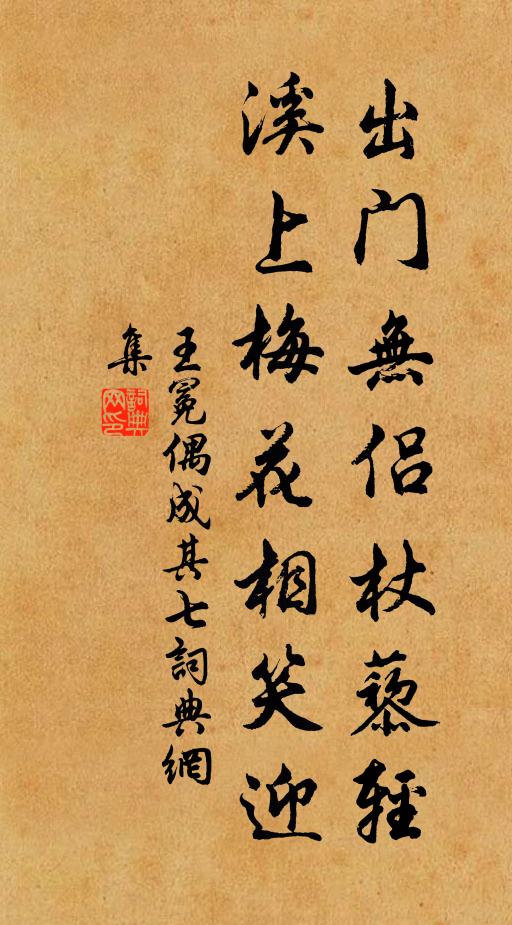 出門無侶杖藜輕
溪上梅花相笑迎
王冕偶成其七詞典網
集
詞典網印